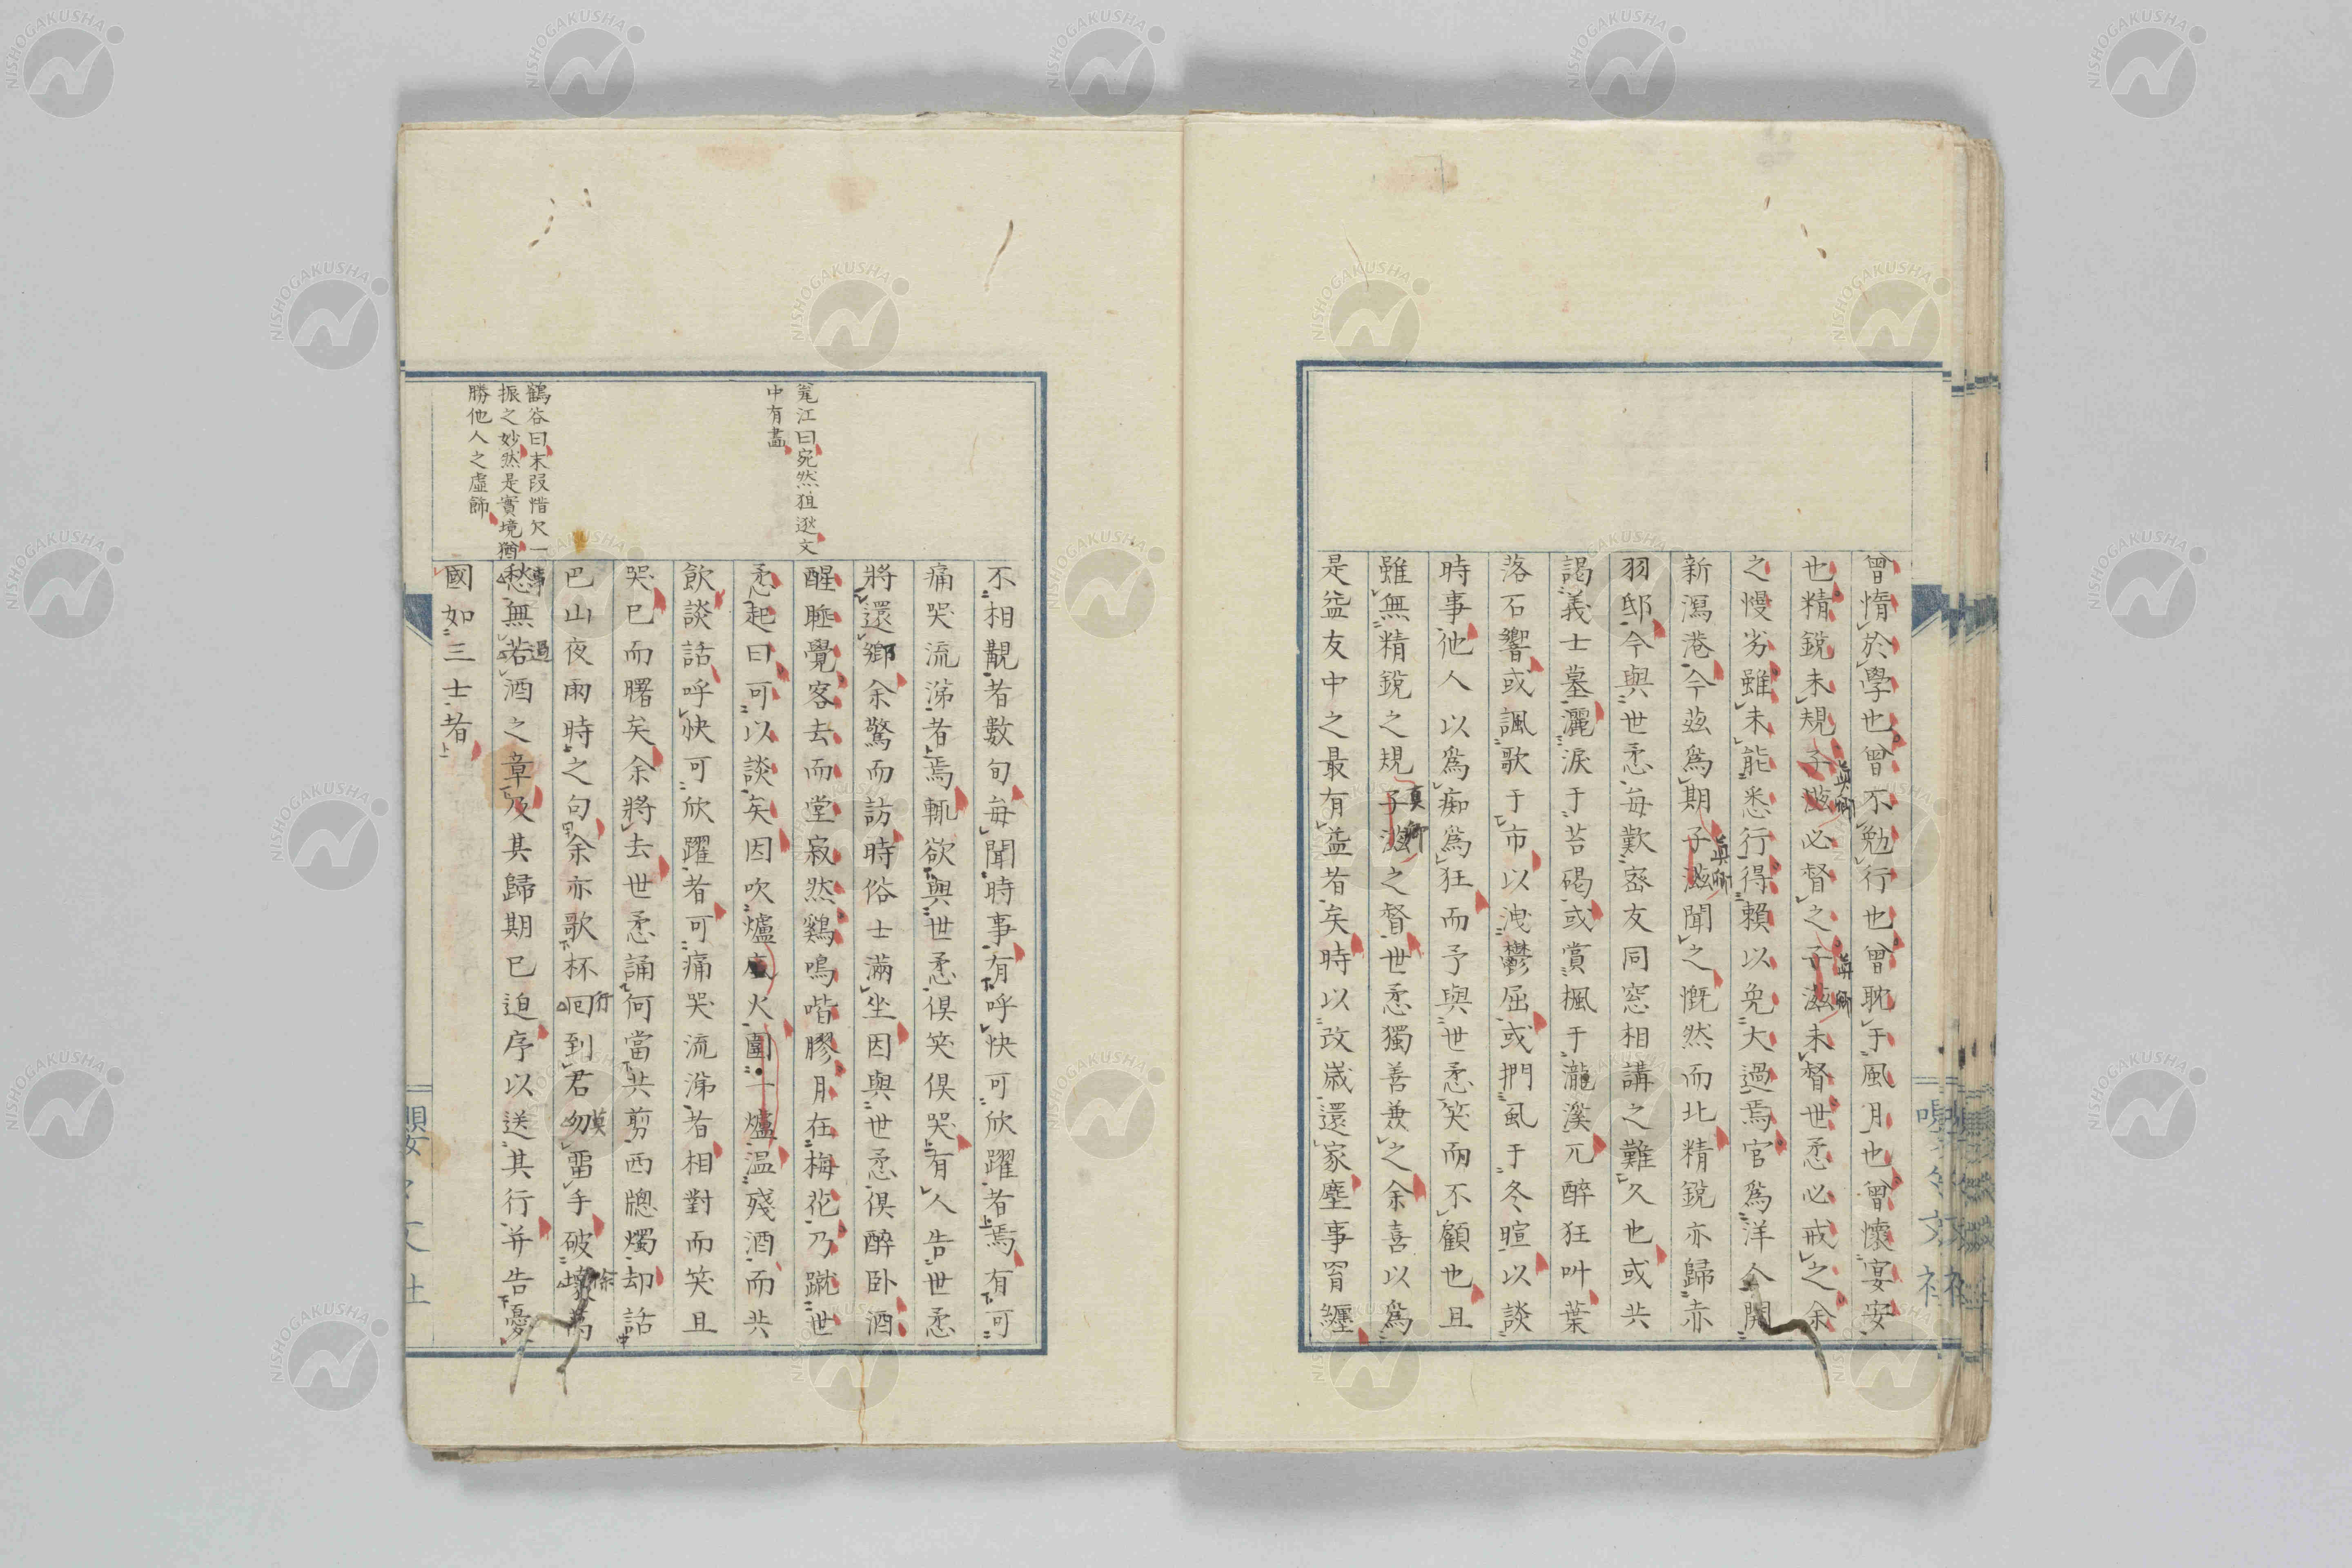 曾惰於學也曾不勉行也曾耽于風月也曾懷宴安
也精銳未規子滋必督之子滋未督世悫必戒之余
真卿
真卿
之慢劣雖未能悉行得賴以免大過焉官爲洋人開
新瀉港今茲爲期子滋聞之慨然而北精銳亦歸赤
真卿
羽邸今與世悫每歎密友同窓相講之難久也或共
謁義士墓灑淚于苔碣或賞楓于瀧溪兀醉狂叫葉
落石響或諷歌于市以洩鬱屈或捫虱于冬暄以談
時事他人以爲痴爲狂而予與世悫笑而不顧也且
雖無精銳之規子滋之督世悫獨善兼之余喜以爲
真卿
是益友中之最有益者矣時以改歲還家塵事胃纏
不相覯者數旬每聞時事有呼快可欣躍者焉有可
痛哭流涕者焉輒欲與世悫俱笑俱哭有人告世悫
將還鄉余驚而訪時俗士滿坐因與世悫俱醉臥酒
醒睡覺客去而堂寂然鷄鳴喈膠月在梅花乃蹴世
悫起曰可以談矣因吹爐底火圍一爐温殘酒而共
飲談話呼快可欣躍者可痛哭流涕者相對而笑且
哭已而曙矣余將去世悫誦何當共剪西牕燭却話
巴山夜雨時之句余亦歌杯到君勿畱手破萬
行
莫
除
愁無若酒之章及其歸期已迫序以送其行并告憂
事
過
國如三士者
篁江曰宛然狙逖文
中有畵
鶴谷曰末段惜欠一
振之妙然是實境猶
勝他人之虛飾